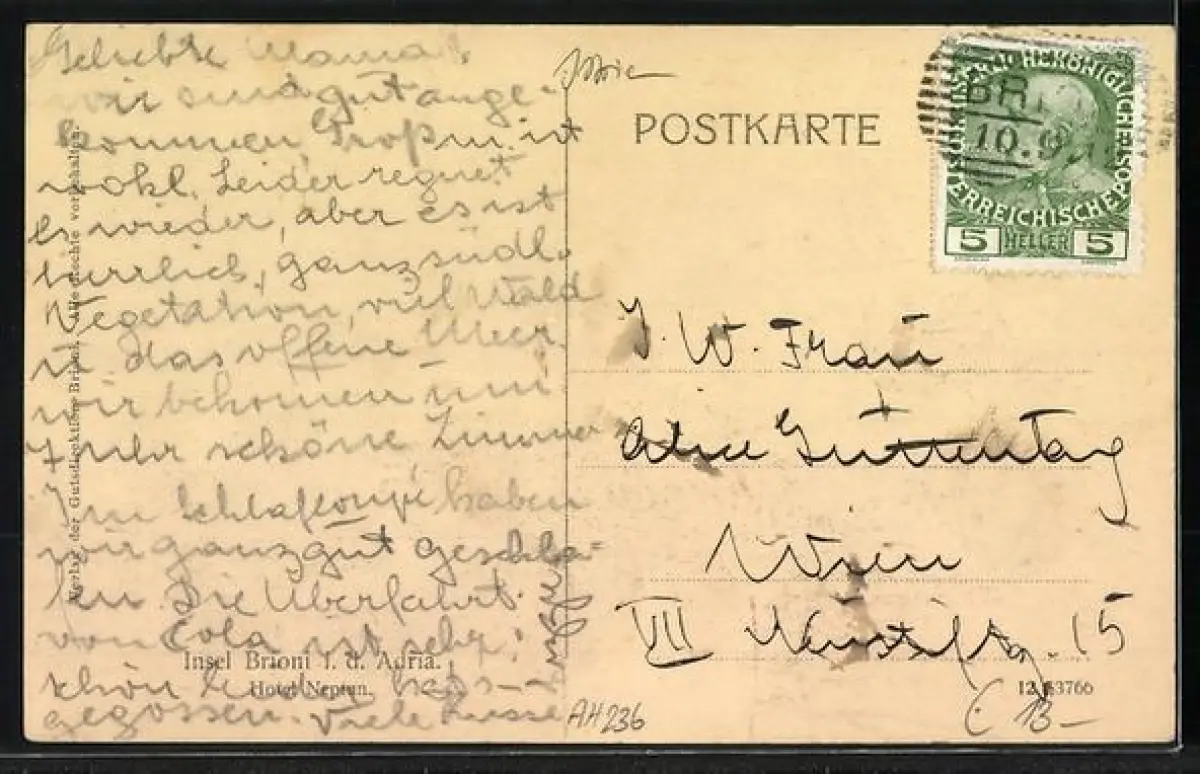 Geliebte Mama!
wir sind gut ange-
kommen, Großm. ist
wohl. Leider regnet
es wieder, aber es ist
herrlich, ganz südl.
Vegetation, viel Wald
u. das offene Meer
wir bekommen um
7 Uhr schöne Zimmer
Im Schlafcoupé haben
wir ganz gut geschla-
fen. Die Überfahrt
von Pola ist sehr
schön
gegossen. Viele Küsse
Verlag der Gutsdirektion Brioni. Alle Rechte vorbehalten.
Insel Brioni i. d. Adria.
Hotel Neptun.
AH 236
POSTKARTE
BRI
10.9
KAISERL. U. KÖNIGLICHE ÖSTERREICHISCHE POST
5 HELLER 5
I. W. Frau
Alice Guttentag
Wien
VII Neustiftg. 15
12 63766